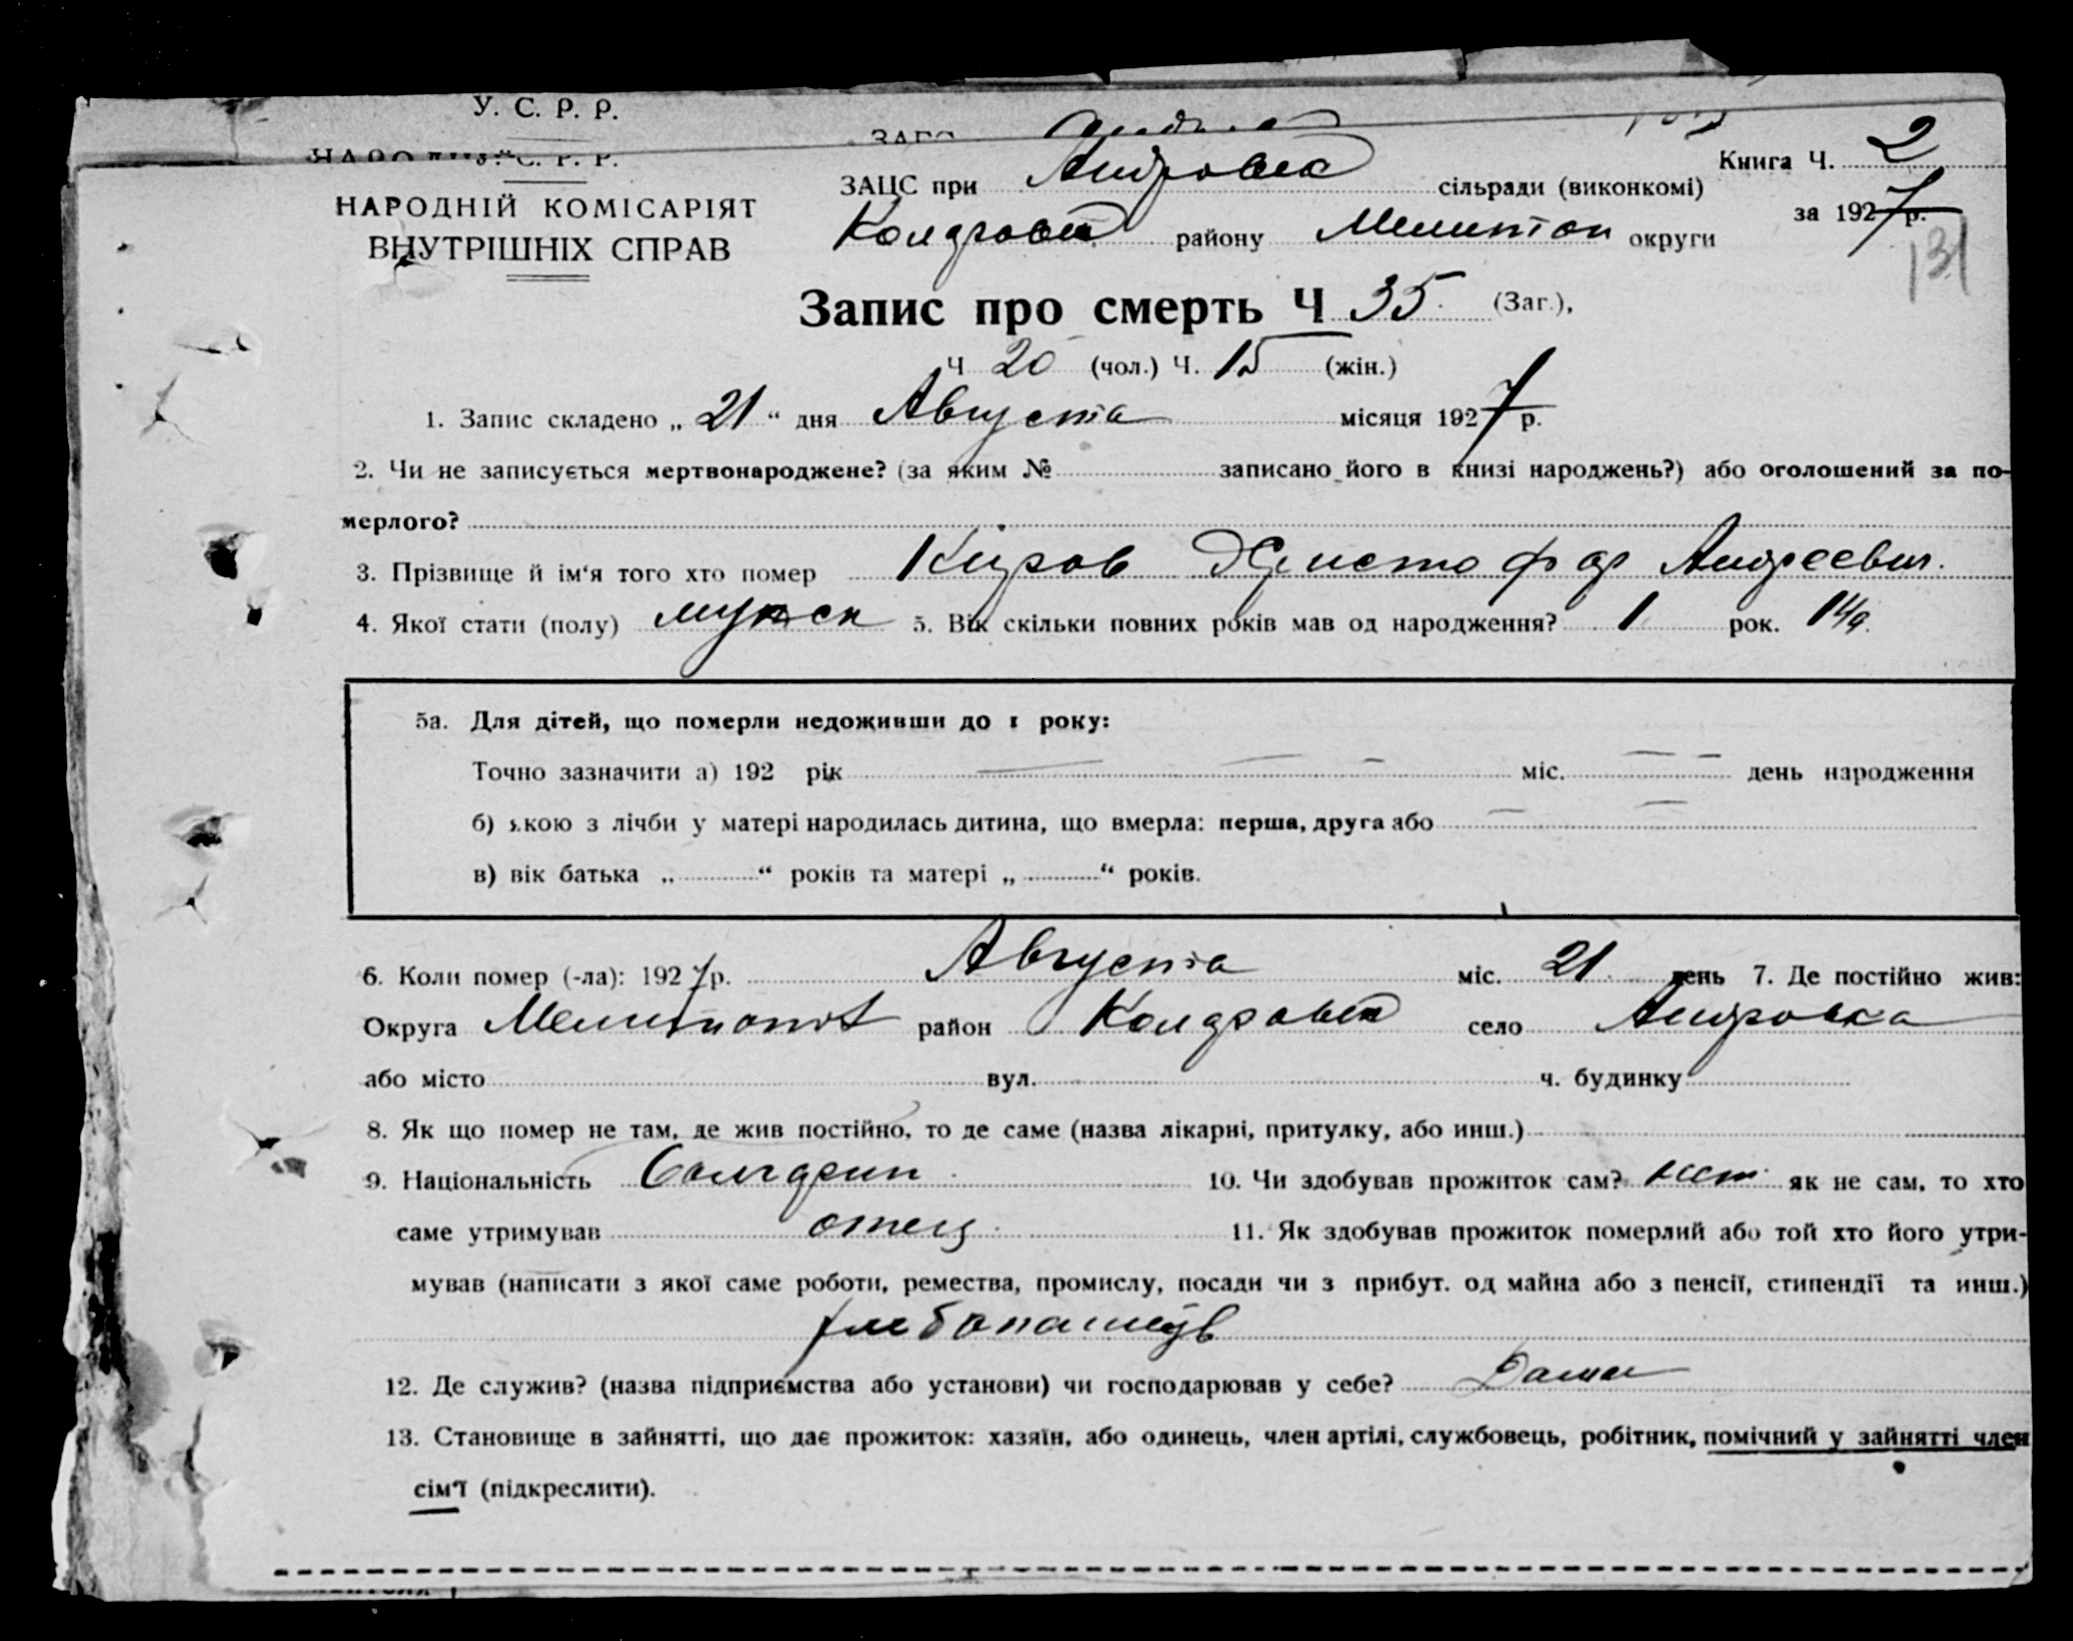 У. С. Р. Р.
ЗАЦС при Андровка сільради (виконкомі) Книга Ч. 2
НАРОДНІЙ КОМІСАРІЯТ
ВНУТРІШНІХ СПРАВ
району Мелитоп округи за 1927 р.
131
Запис про смерть Ч 35 (Заг.),
Ч 20 (чол.) Ч. 15 (жін.)
1. Запис складено „ 21 “ дня Августа місяця 1927 р.
2. Чи не записується мертвонароджене? (за яким № записано його в книзі народжень?) або оголошений за по-
мерлого?
3. Прізвище й ім‘я того хто помер Киров Христофор Андреевич.
4. Якої стати (полу) мужск 5. Вік скільки повних років мав од народження? 1 рок.
5а. Для дітей, що померли недоживши до 1 року:
Точно зазначити а) 192 рік міс. день народження
б) якою з лічби у матері народилась дитина, що вмерла: перша, друга або
в) вік батька „ “ років та матері „ “ років.
6. Коли помер (-ла): 1927 р. Августа міс. 21 день 7. Де постійно жив:
Округа район село Андровка
або місто вул. ч. будинку
8. Як що помер не там, де жив постійно, то де саме (назва лікарні, притулку, або инш.)
9. Національність болгарин 10. Чи здобував прожиток сам? нет як не сам, то хто
саме утримував отец 11. Як здобував прожиток померлий або той хто його утри-
мував (написати з якої саме роботи, ремества, промислу, посади чи з прибут. од майна або з пенсії, стипендії та инш.)
12. Де служив? (назва підприємства або установи) чи господарював у себе? Дома
13. Становище в зайнятті, що дає прожиток: хазяїн, або одинець, член артілі, службовець, робітник, помічний у зайнятті член
сім‘ї (підкреслити).